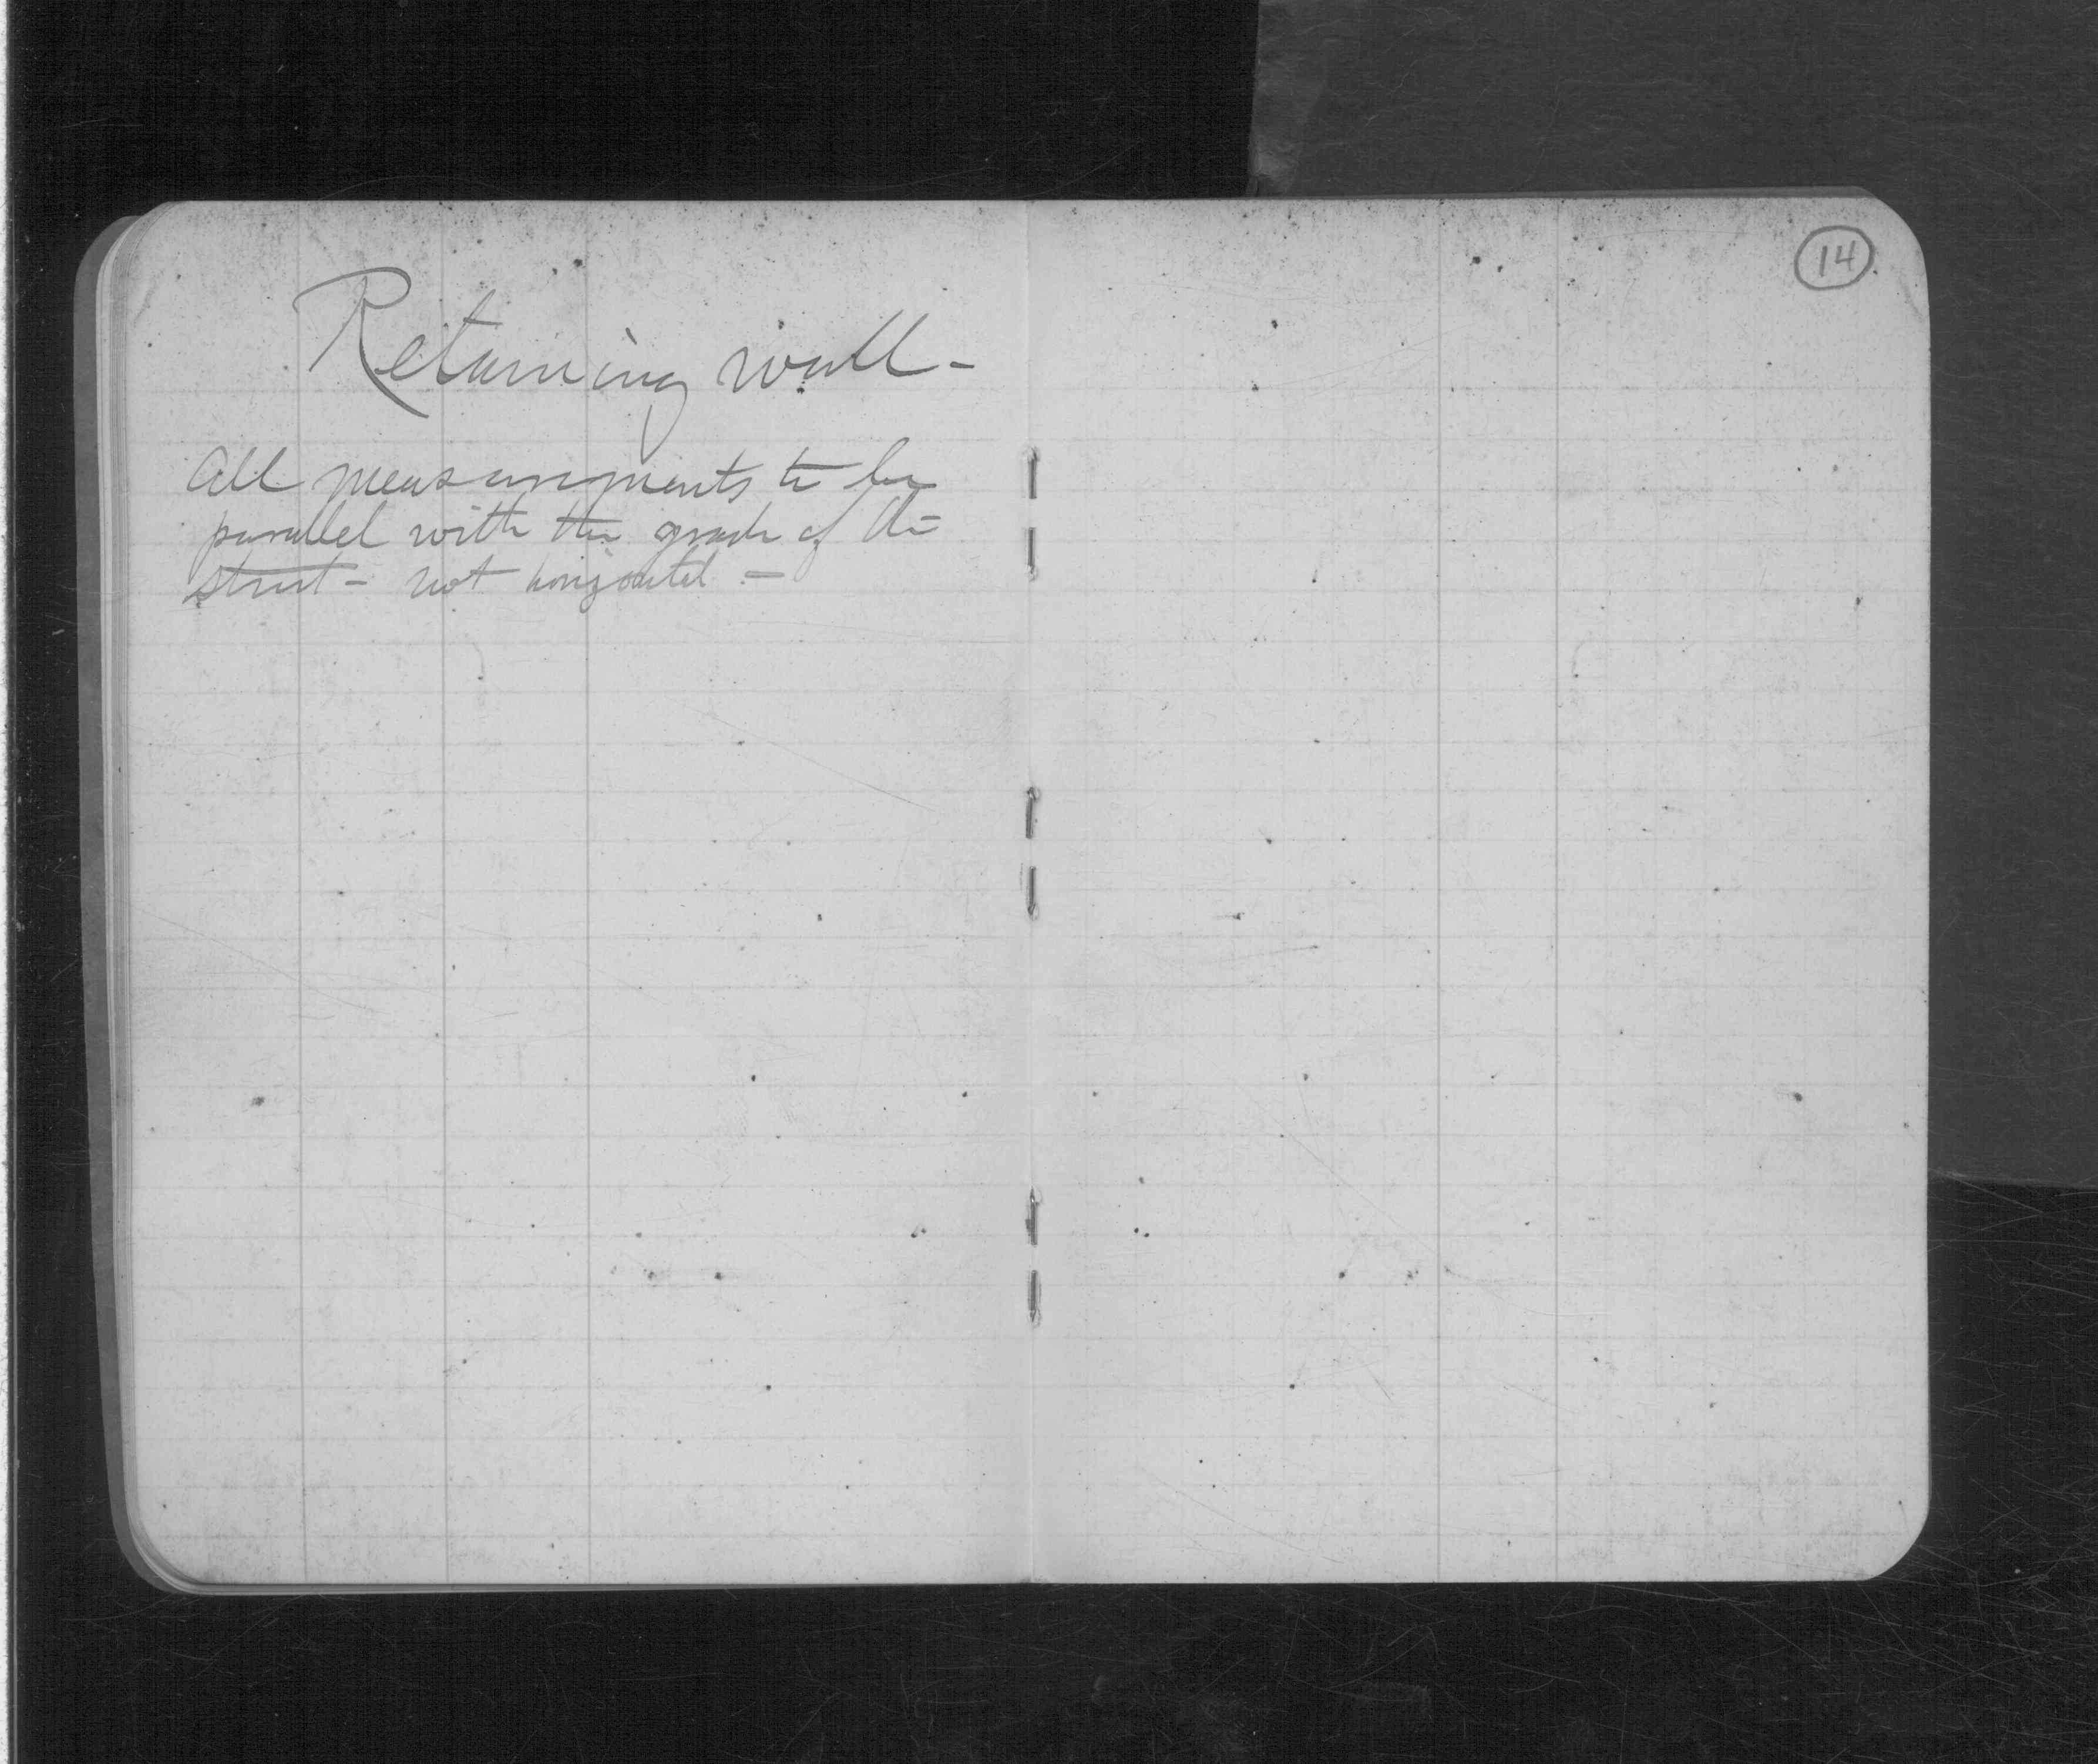 Retaining wall -
All measurements to be
parallel with the grade of the
street - not horizontal -
14